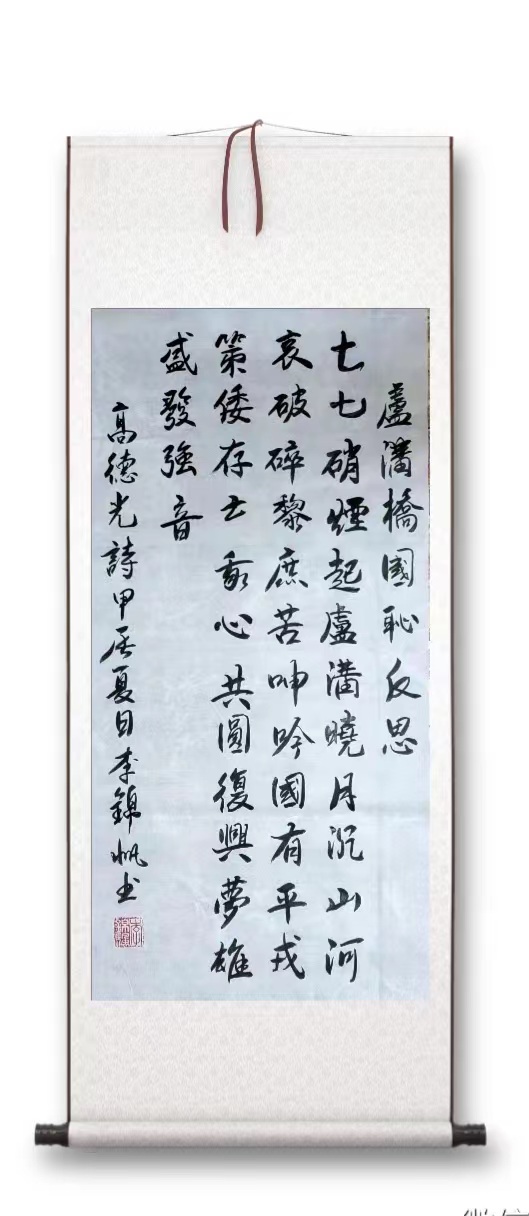 蘆溝橋國恥反思
七七硝煙起盧溝曉月沉山河
哀破碎黎庶苦呻吟國有平戎
策倭存亡我心共圓復興夢雄
盛發強音
高德光詩甲辰夏日李錦帆书